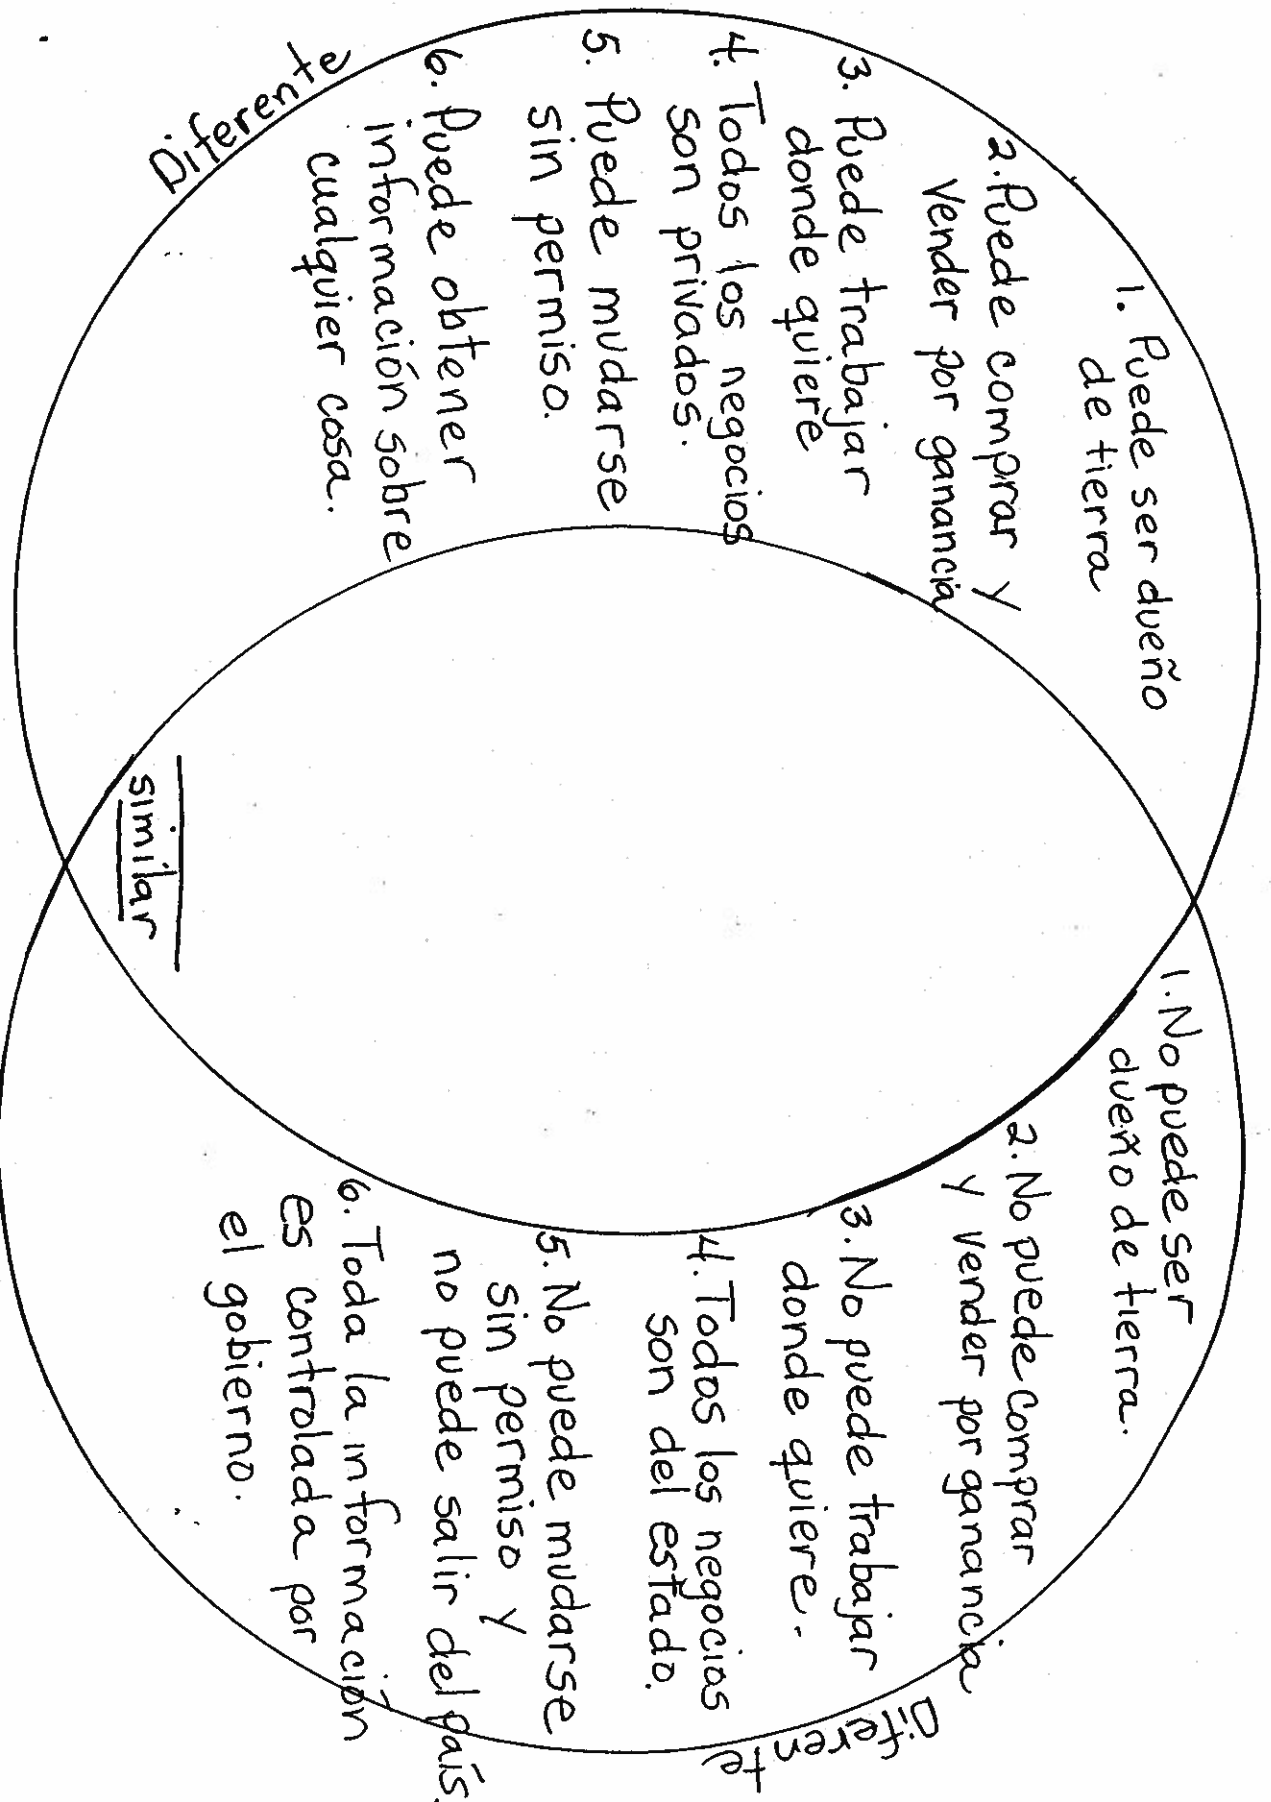 1. Puede ser dueño
de tierra
2. Puede comprar y
vender por ganancia
3. Puede trabajar
donde quiere
4. Todos los negocios
son privados.
5. Puede mudarse
sin permiso.
6. Puede obtener
información sobre
cualquier cosa.
Diferente
similar
1. No puede ser
dueño de tierra.
2. No puede comprar
y vender por ganancia
3. No puede trabajar
donde quiere.
4. Todos los negocios
son del estado.
5. No puede mudarse
sin permiso y
no puede salir del país.
6. Toda la información
es controlada por
el gobierno.
Diferente